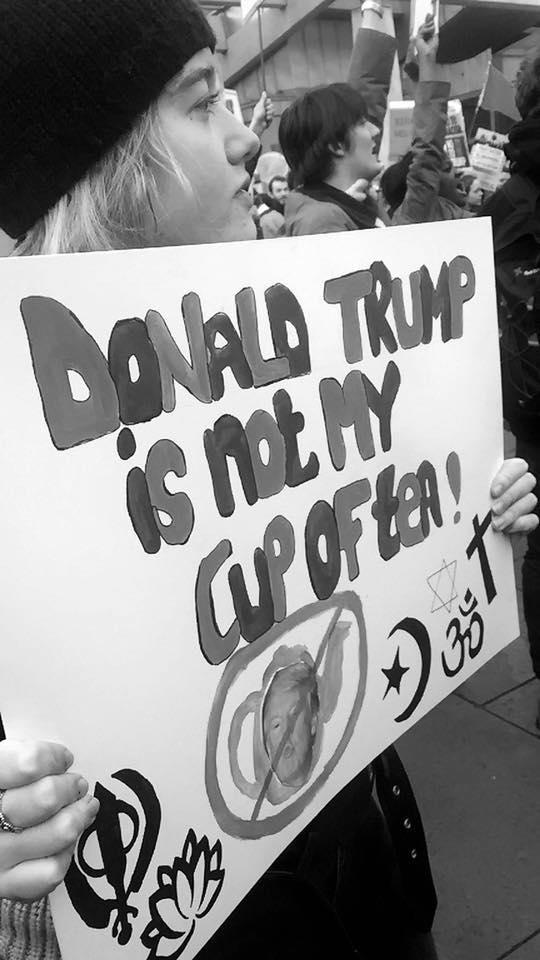 DONALD TRUMP
is not MY
CUP OF tea!
ॐ